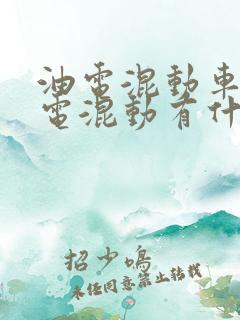 油電混動車
電混動有什
招少鳴
未经同意禁止转载